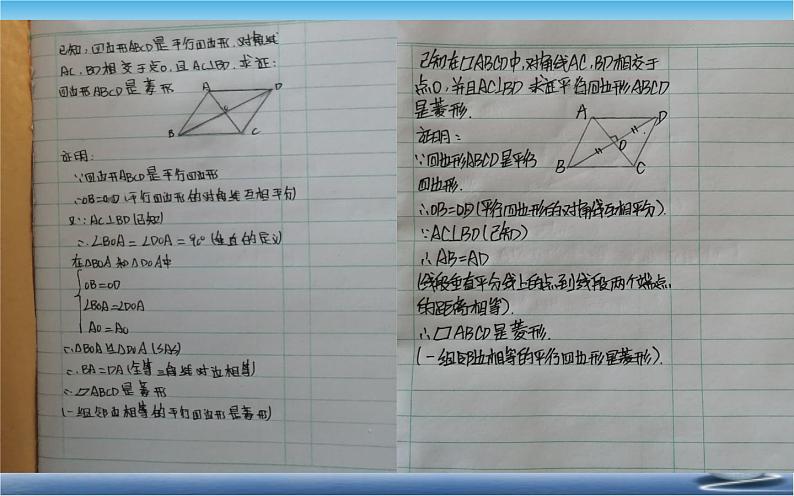 已知：四边形ABCD是平行四边形，对角线
AC，BD相交于点O，且AC⊥BD，求证：
四边形ABCD是菱形
A D
O
B C
证明：
∵四边形ABCD是平行四边形
∴OB=OD(平行四边形的对角线互相平分)
又∵AC⊥BD(已知)
∴∠BOA=∠DOA=90°(垂直的定义)
在△BOA和△DOA中
OB=OD
∠BOA=∠DOA
AO=AO
∴△BOA≌△DOA(SAS)
∴BA=DA(全等三角形对边相等)
∴▱ABCD是菱形
(一组邻边相等的平行四边形是菱形)
已知在▱ABCD中，对角线AC，BD相交于
点O，并且AC⊥BD 求证平行四边形ABCD
是菱形.
A D
O
B C
证明：
∵四边形ABCD是平行
四边形.
∴OB=OD(平行四边形的对角线互相平分).
∵AC⊥BD(已知)
∴AB=AD
(线段垂直平分线上的点到线段两个端点
的距离相等).
∴▱ABCD是菱形.
(一组邻边相等的平行四边形是菱形).